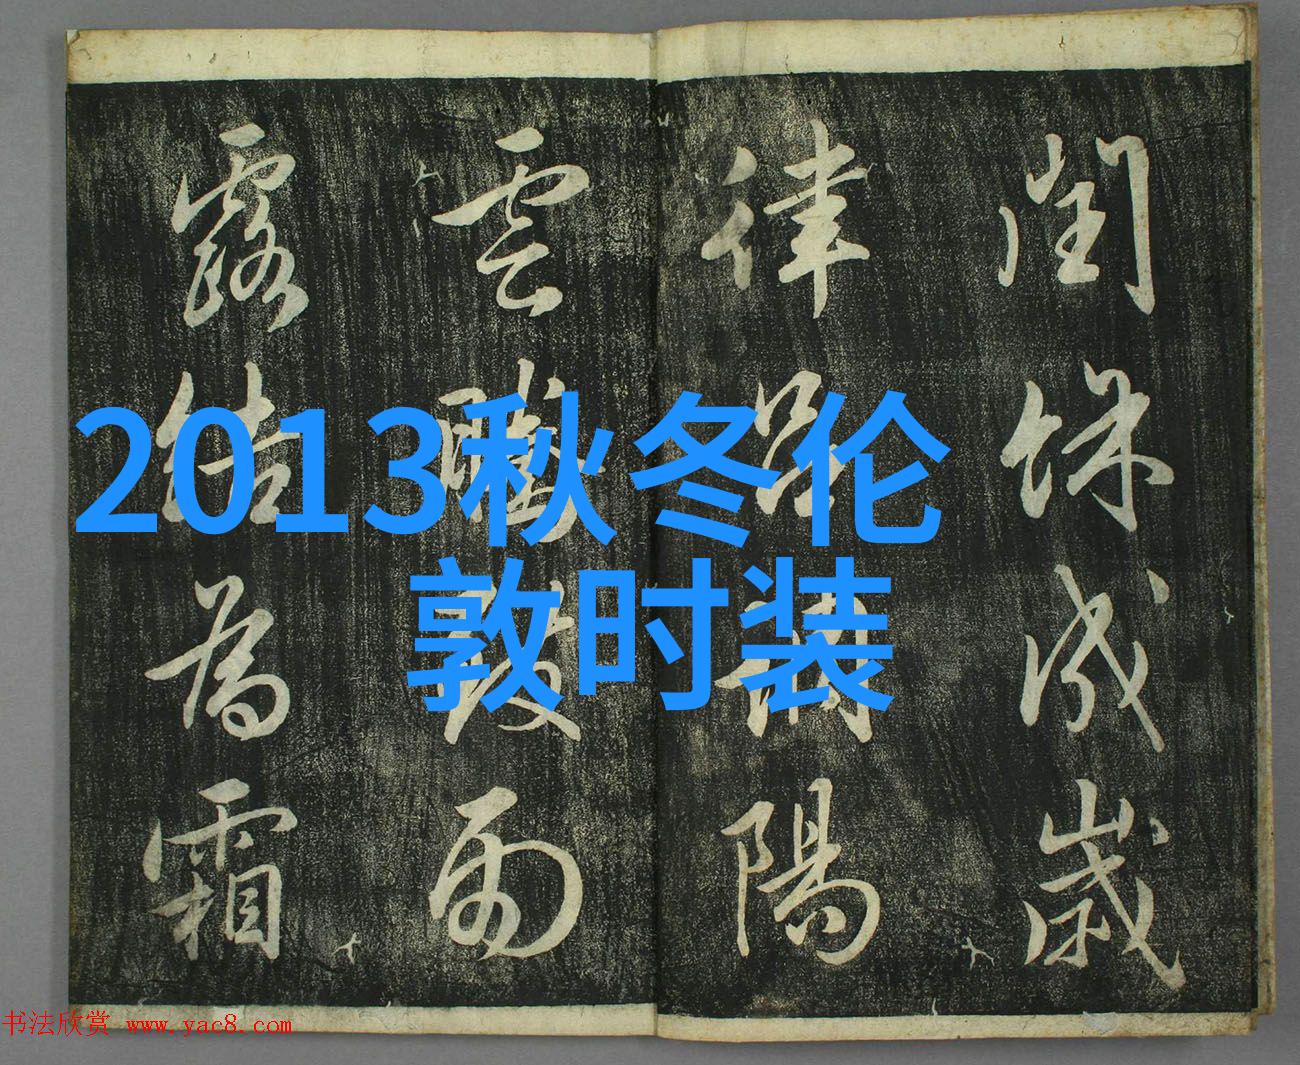 閏餘成歲
律呂調陽
雲騰致雨
露結為霜
2013秋冬伦
敦时装
书法欣赏 www.yac8.com